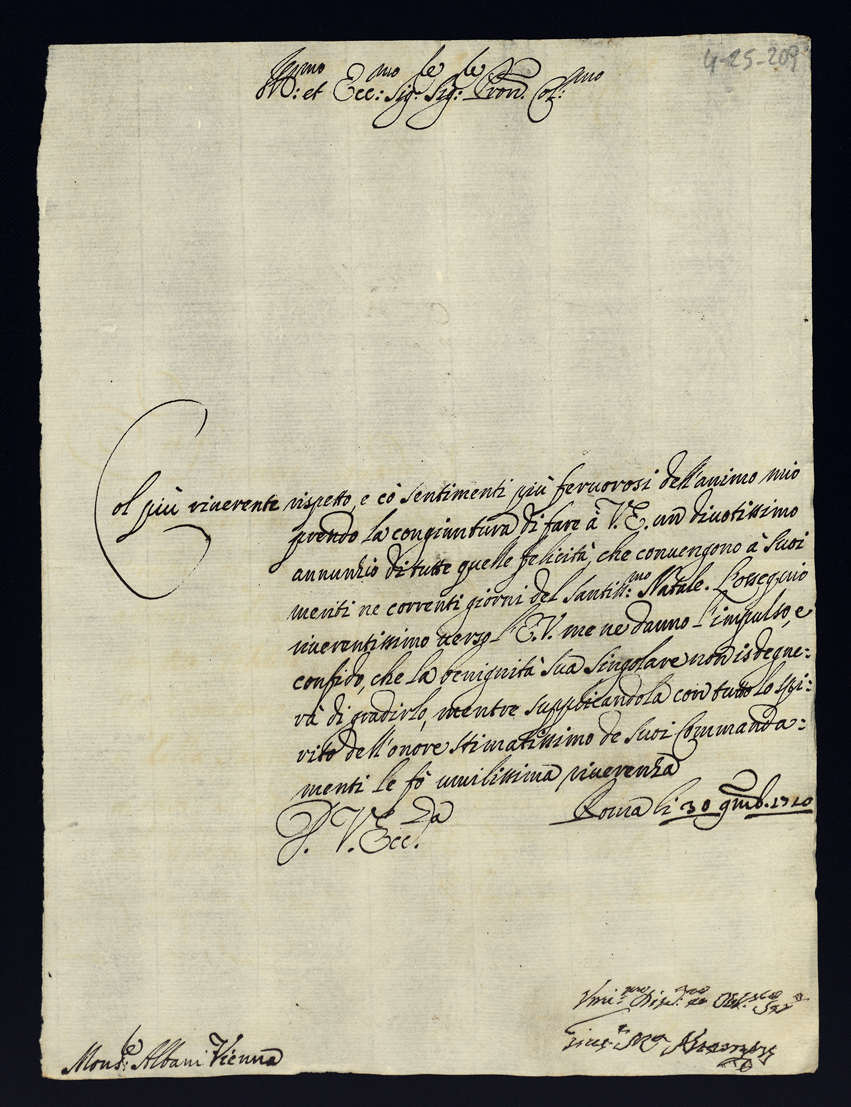 4-25-209
Ill.mo et Ecc.mo Sig.re Sig.re Pron. Col.mo
Col più riuerente rispetto, e cõ sentimenti più feruorosi dell'animo mio
prendo la congiuntura di fare à V.E. un diuotissimo
annunzio di tutte quelle felicità, che convengono à suoi
meriti ne correnti giorni del Santiss.mo Natale. L'ossequio
riuerentissimo verso l'E.V. me ne danno l'impulso, e
confido, che la benignità sua singolare non isdegne:
rà di gradirlo, mentre supplicandola con tutto lo spi:
rito dell'onore stimatissimo de suoi Commanda:
menti le fò umilissima riuerenza
D. V. Ecc.za
Roma li 30 9mb. 1720
Mons.re Albani Vienna